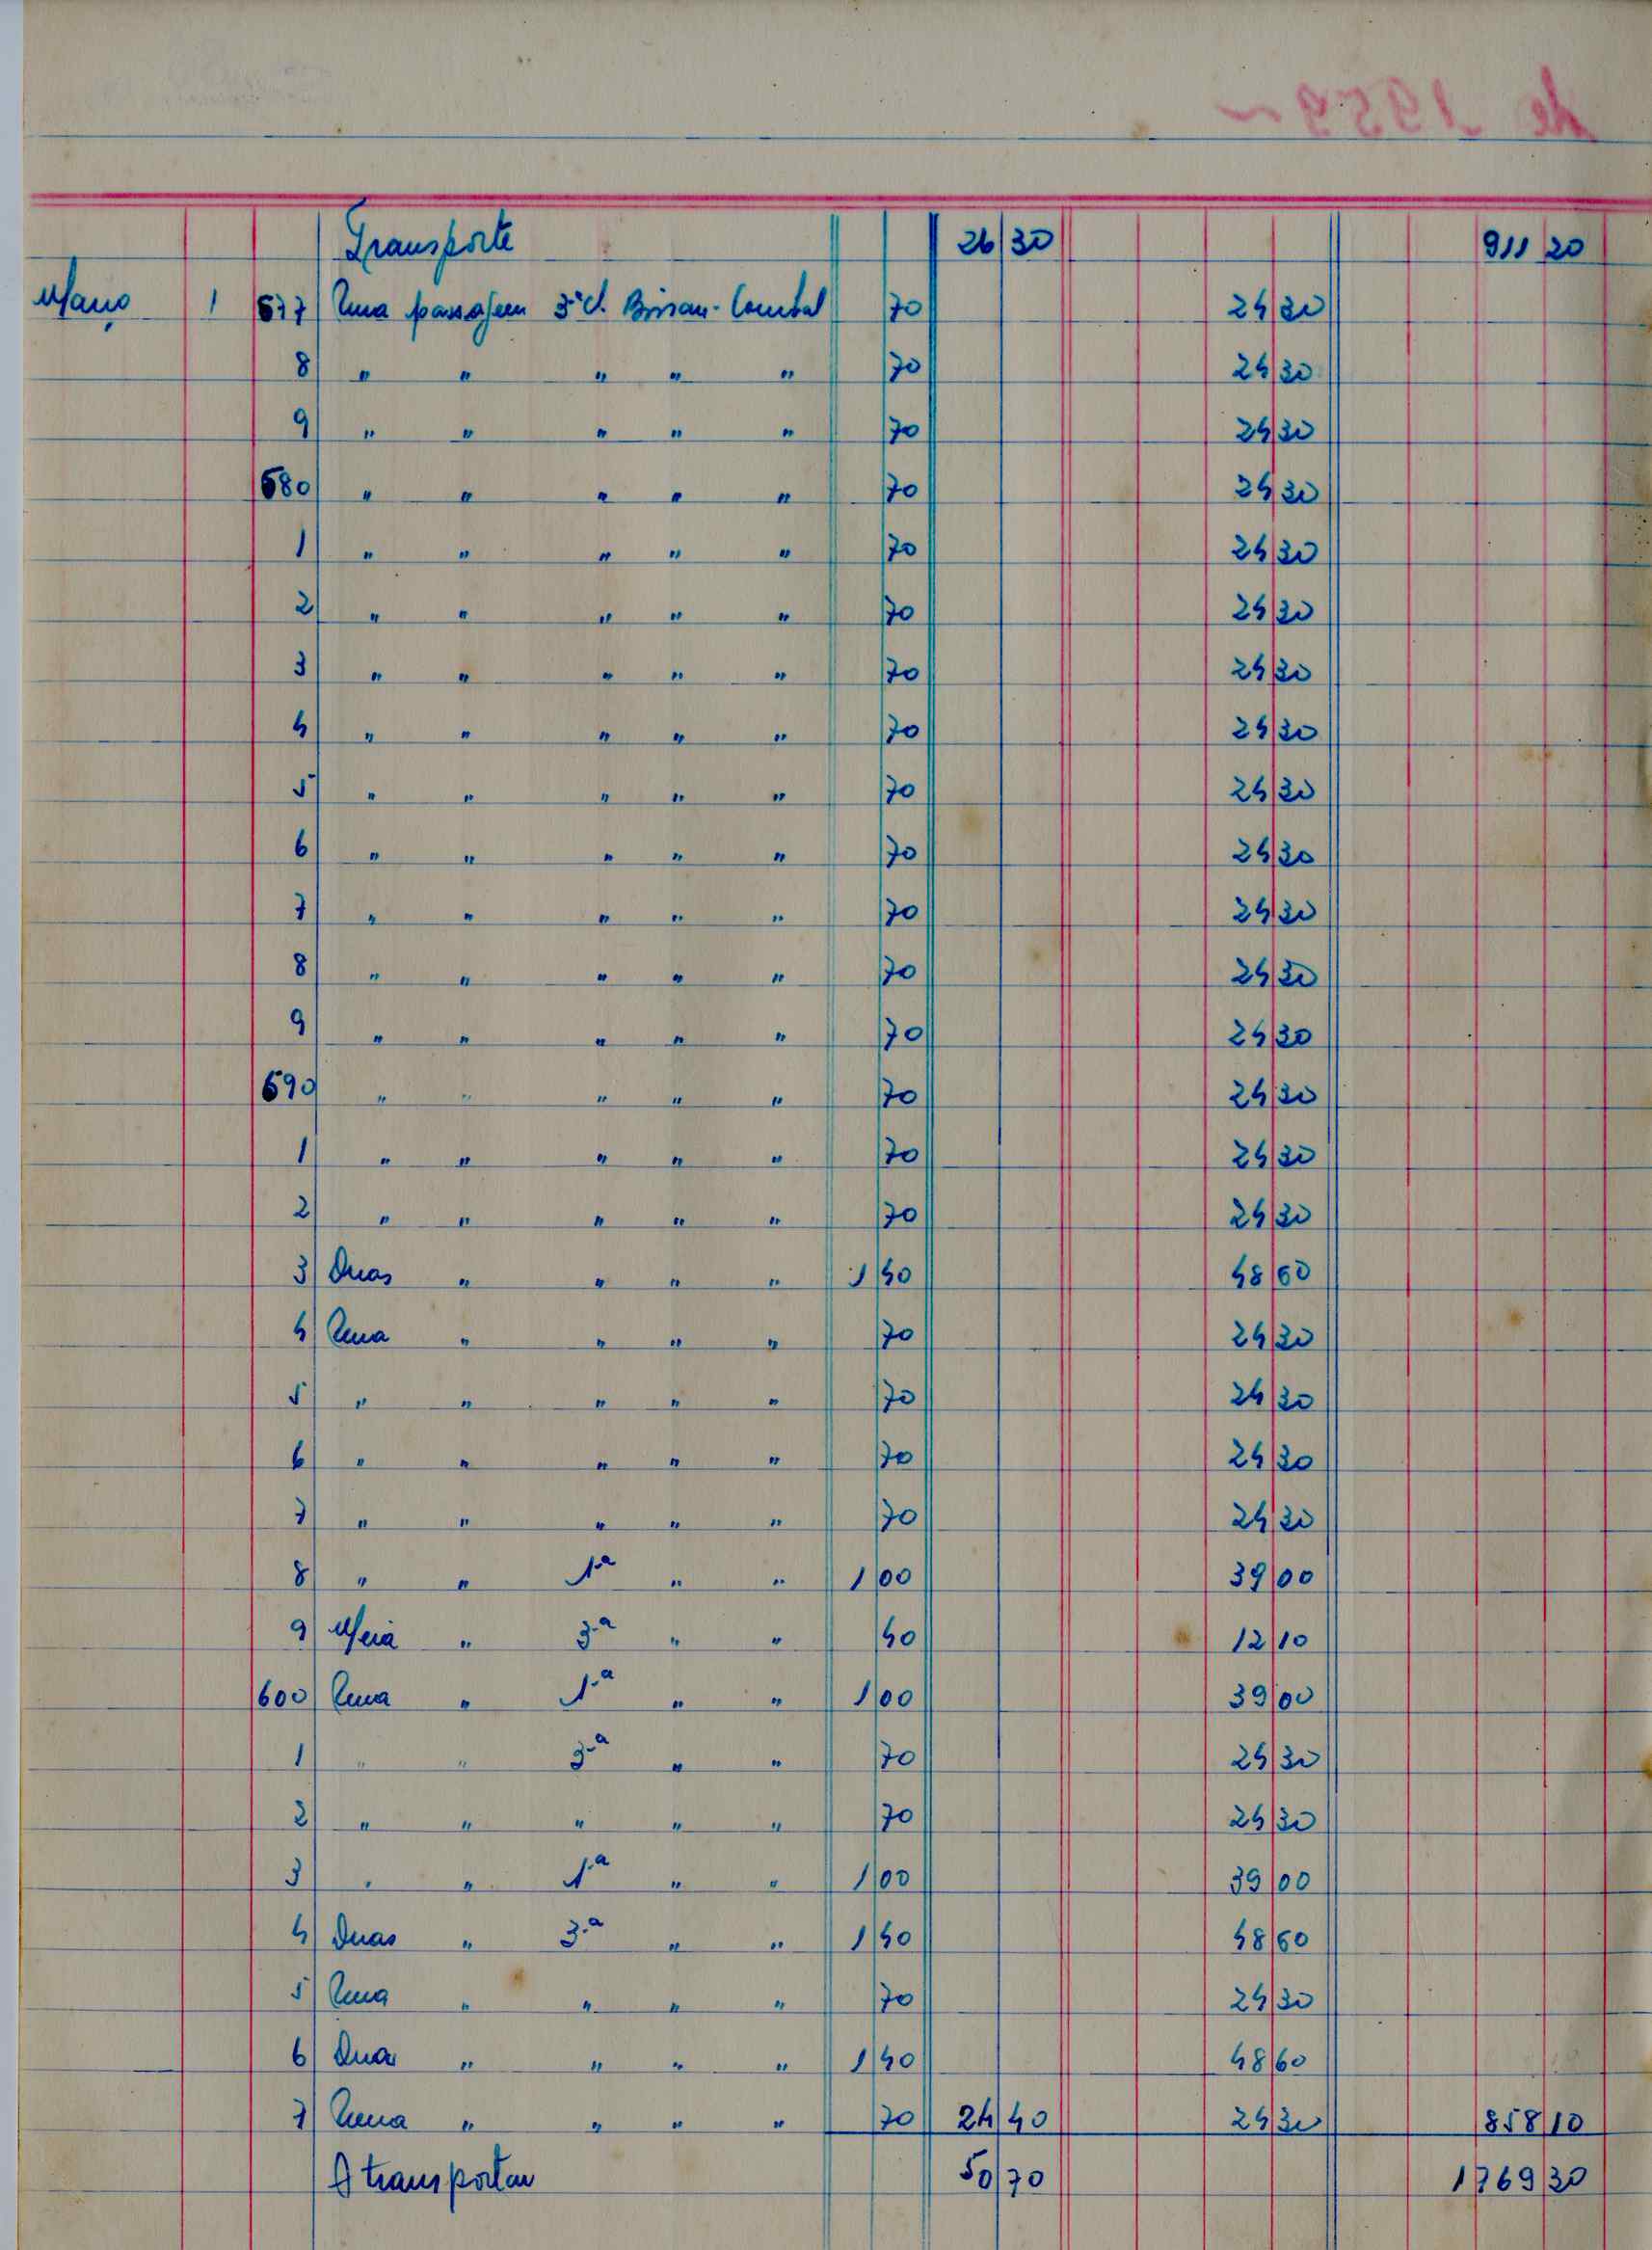 de 1959
Transporte 26 30 911 20
Março 1 577 Uma passagem 3ª cl. Bissau-Cumbal 70 24 30
8 " " " " " 70 24 30
9 " " " " " 70 24 30
580 " " " " " 70 24 30
1 " " " " " 70 24 30
2 " " " " " 70 24 30
3 " " " " " 70 24 30
4 " " " " " 70 24 30
5 " " " " " 70 24 30
6 " " " " " 70 24 30
7 " " " " " 70 24 30
8 " " " " " 70 24 30
9 " " " " " 70 24 30
590 " " " " " 70 24 30
1 " " " " " 70 24 30
2 " " " " " 70 24 30
3 Duas " " " " 1 40 48 60
4 Uma " " " " 70 24 30
5 " " " " " 70 24 30
6 " " " " " 70 24 30
7 " " " " " 70 24 30
8 " " 1.ª " " 1 00 39 00
9 Meia " 3.ª " " 40 12 10
600 Uma " 1.ª " " 1 00 39 00
1 " " 3.ª " " 70 24 30
2 " " " " " 70 24 30
3 " " 1.ª " " 1 00 39 00
4 Duas " 3.ª " " 1 40 48 60
5 Uma " " " " 70 24 30
6 Duas " " " " 1 40 48 60
7 Uma " " " " 70 24 40 24 30 858 10
A transportar 50 70 1769 30